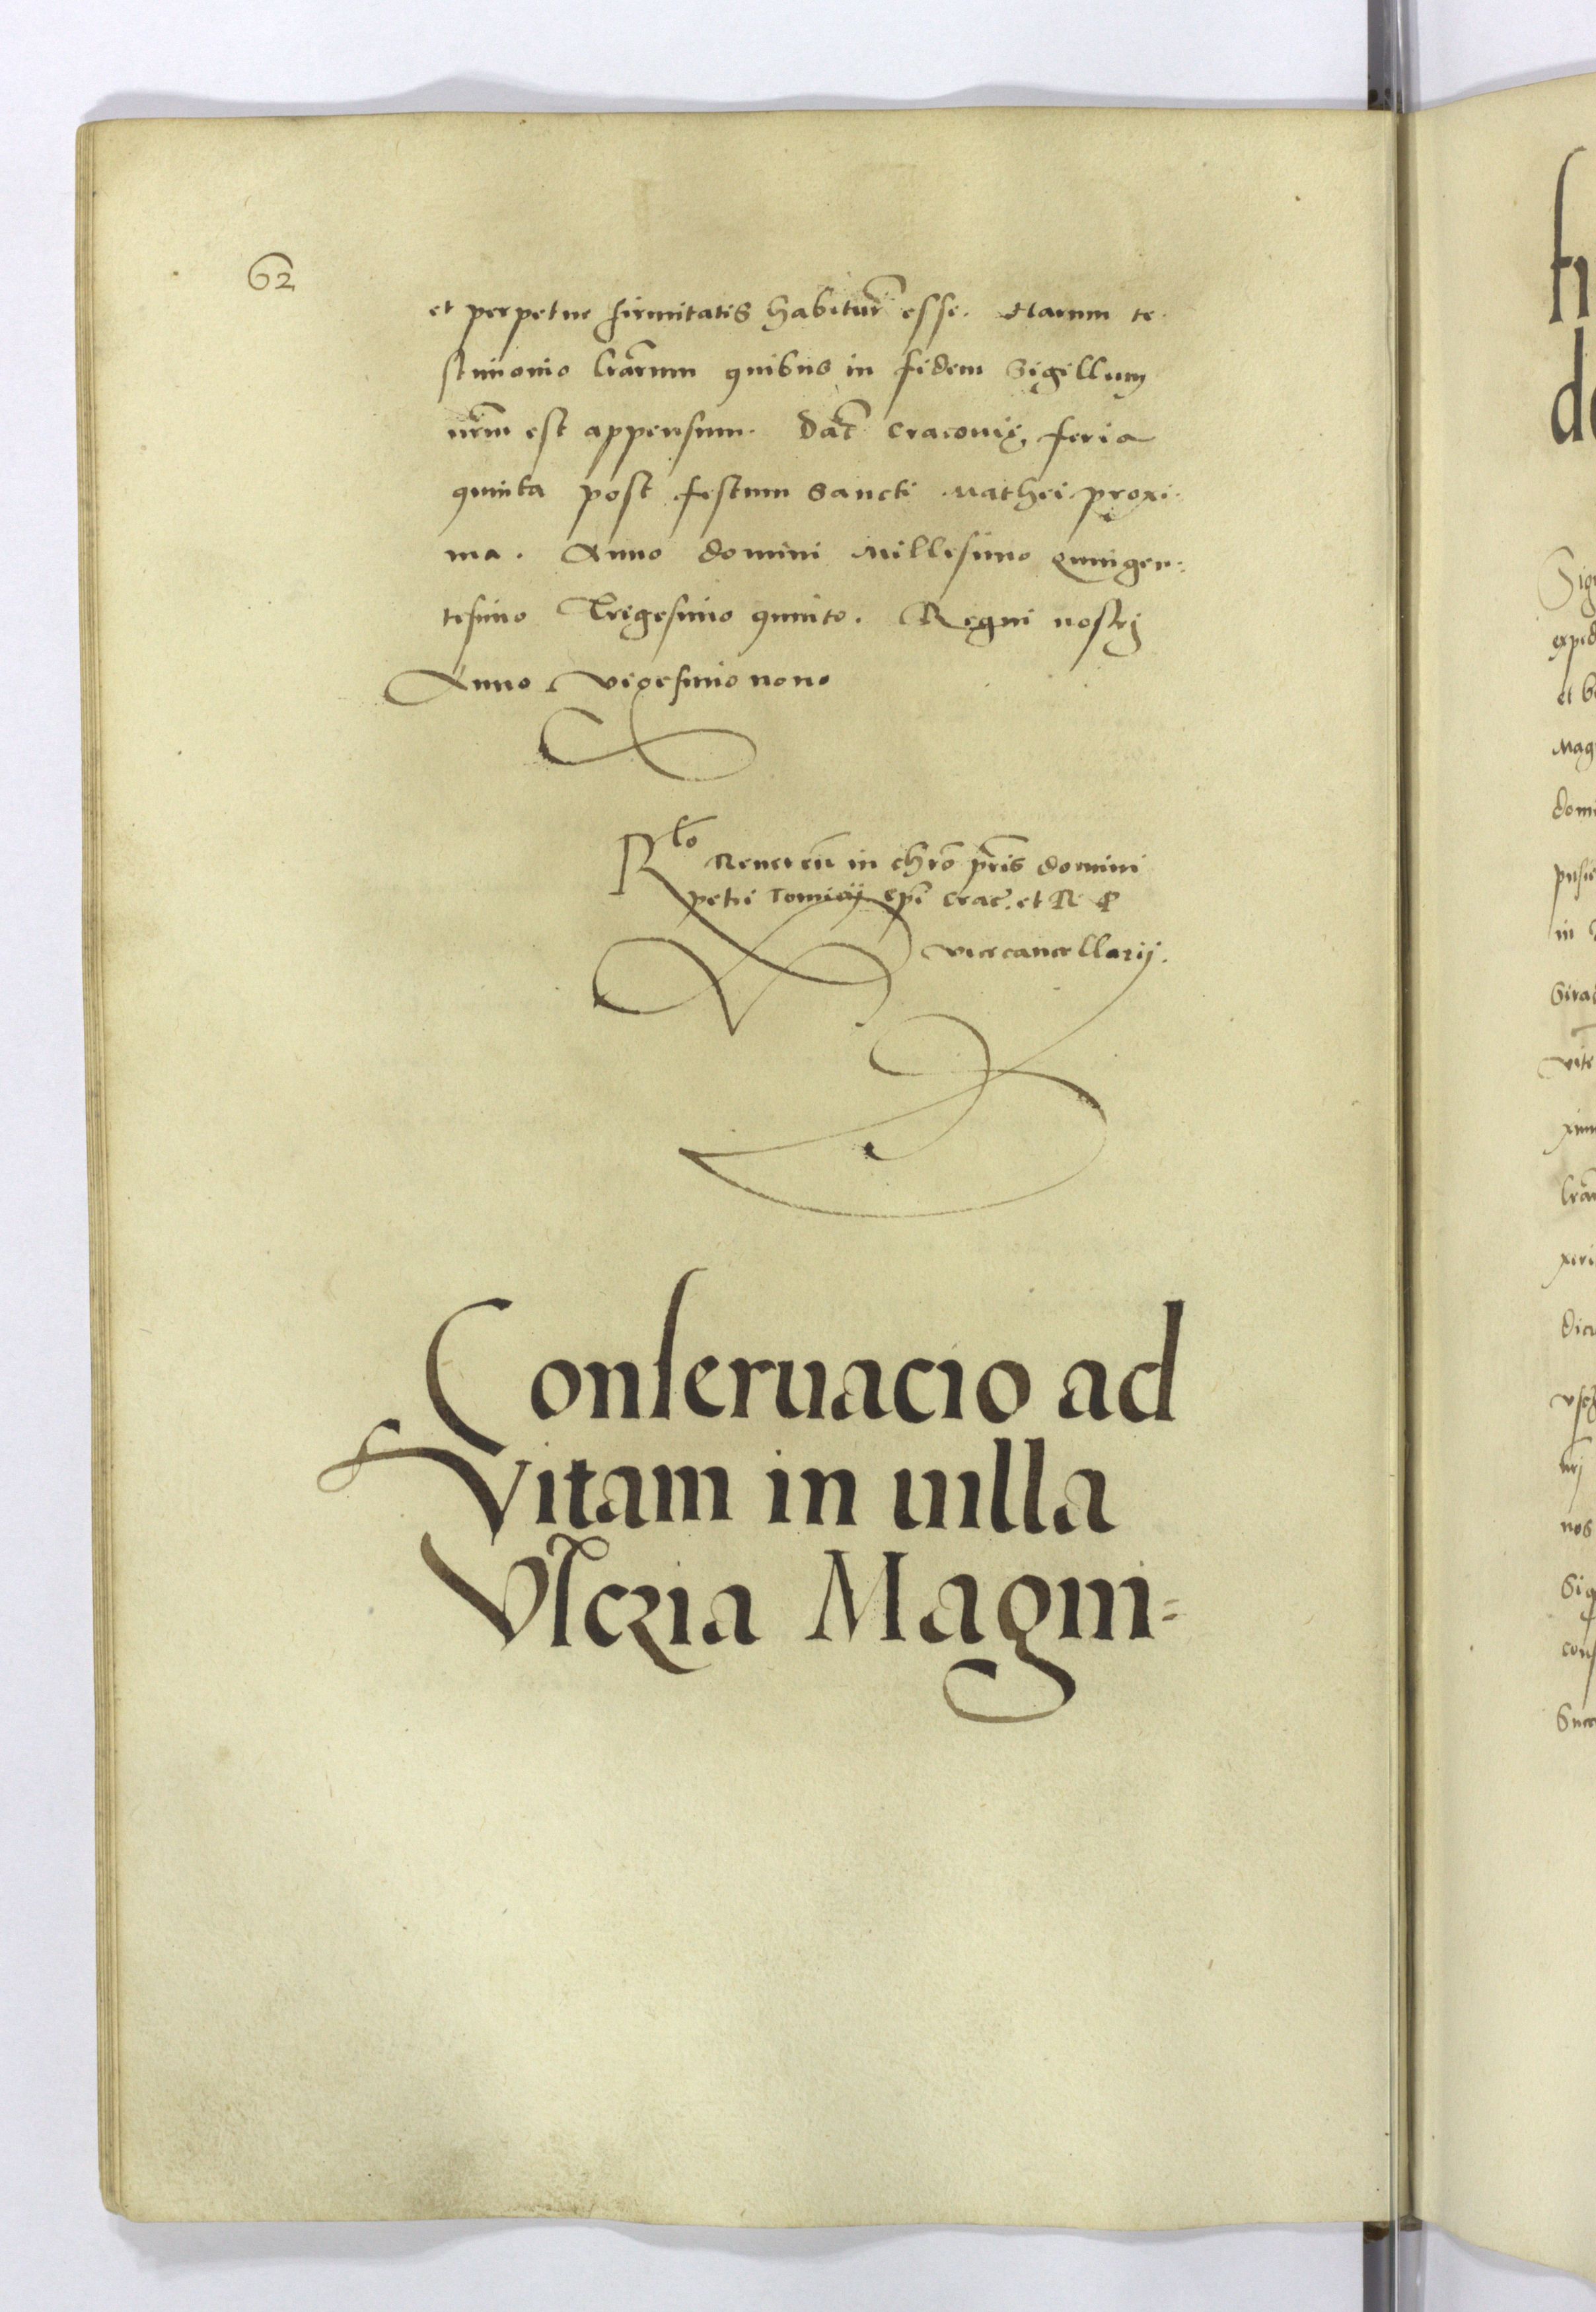 62
et perpetue firmitatis habitur̃ esse. Harum te-
stimonio lr̃arum quibus in fidem Sigillum
nr̃m est appensum. Dat̃ Cracovię, feria
quinta post festum Sancti Mathei proxi-
ma. Anno domini Millesimo Quingen-
tesimo Trigesimo quinto. Regni nostrj
Anno vigesimo nono
Rl̃o Reueren̄ in chrõ pr̃is domini
petri Tomicij ep̃i Crac̃. et R P
vicecancellarij.
Conseruacio ad
Vitam in uilla
Vsczia Magni=
fi
de
Sig
exped
et b
Mag
dom
in
Sirad
vite
lrãr
xeri
dict
nos
Sig
cons
Succ